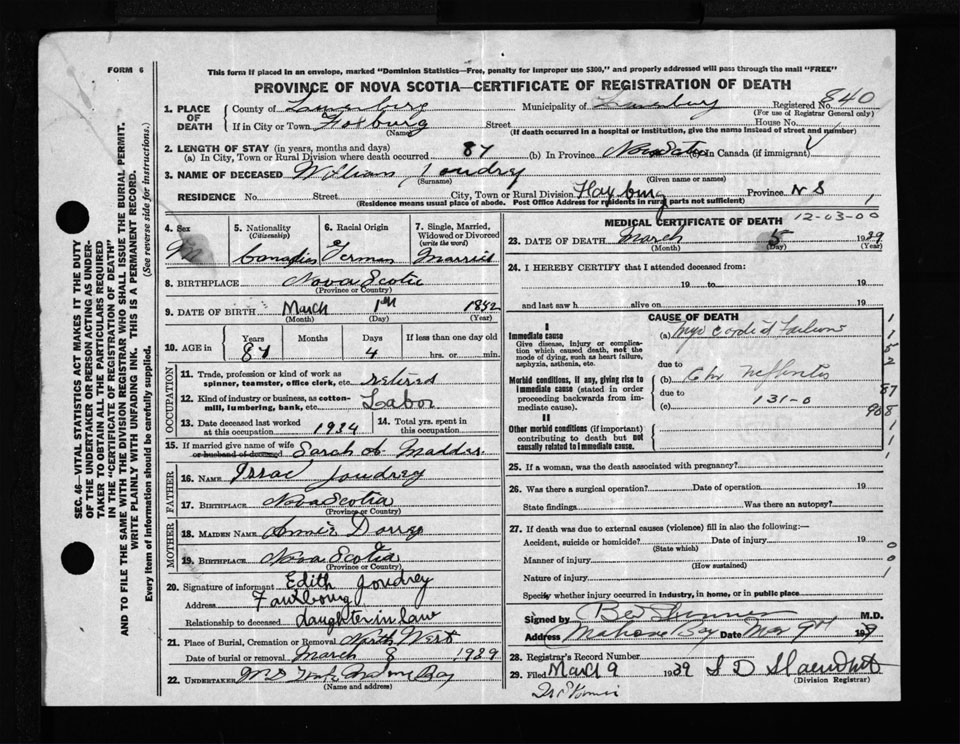 FORM 6
This form if placed in an envelope, marked "Dominion Statistics—Free, penalty for improper use $300," and properly addressed will pass through the mail "FREE"
PROVINCE OF NOVA SCOTIA—CERTIFICATE OF REGISTRATION OF DEATH
1. PLACE OF DEATH
County of Lunenburg Municipality of Lunenburg Registered No. 840
(For use of Registrar General only)
If in City or Town Foxburg Street House No.
(Name) (If death occurred in a hospital or institution, give the name instead of street and number)
2. LENGTH OF STAY (in years, months and days)
(a) In City, Town or Rural Division where death occurred 87 (b) In Province Nova Scotia (c) In Canada (if immigrant)
3. NAME OF DECEASED William Joudrey
(Surname) (Given name or names)
RESIDENCE No. Street City, Town or Rural Division Province N S
(Residence means usual place of abode. Post Office Address for residents in rural parts not sufficient)
4. Sex M
5. Nationality (Citizenship) Canadian
6. Racial Origin German
7. Single, Married, Widowed or Divorced (write the word) Married
8. BIRTHPLACE Nova Scotia
(Province or Country)
9. DATE OF BIRTH March 1th 1852
(Month) (Day) (Year)
10. AGE in Years Months Days If less than one day old
87 4 hrs. or min.
OCCUPATION
11. Trade, profession or kind of work as spinner, teamster, office clerk, etc. retired
12. Kind of industry or business, as cotton-mill, lumbering, bank, etc. Labor
13. Date deceased last worked at this occupation 1934
14. Total yrs. spent in this occupation
15. If married give name of wife or husband of deceased Sarah
FATHER
16. NAME Isaac Joudrey
17. BIRTHPLACE Nova Scotia
(Province or Country)
MOTHER
18. MAIDEN NAME Annie
19. BIRTHPLACE Nova Scotia
(Province or Country)
20. Signature of informant Edith Joudrey
Address
Relationship to deceased daughter in law
21. Place of Burial, Cremation or Removal North West
Date of burial or removal March 8 1939
22. UNDERTAKER
(Name and address)
MEDICAL CERTIFICATE OF DEATH 12-03-00
23. DATE OF DEATH March 5 1939
(Month) (Day)
24. I HEREBY CERTIFY that I attended deceased from:
19 to 19
and last saw h alive on 19
CAUSE OF DEATH
I
Immediate cause
Give disease, injury or complication which caused death, not the mode of dying, such as heart failure, asphyxia, asthenia, etc.
(a) Myocardial Failure
due to
Morbid conditions, if any, giving rise to immediate cause (stated in order proceeding backwards from immediate cause).
(b) Chr Nephritis
due to 131-0
(c)
II
Other morbid conditions (if important) contributing to death but not causally related to immediate cause.
25. If a woman, was the death associated with pregnancy?
26. Was there a surgical operation? Date of operation 19
State findings Was there an autopsy?
27. If death was due to external causes (violence) fill in also the following:—
Accident, suicide or homicide? Date of injury 19
(State which)
Manner of injury
(How sustained)
Nature of injury
Specify whether injury occurred in industry, in home, or in public place
Signed by M.D.
Address Mahone Bay Date Mar 9th 19
28. Registrar's Record Number
29. Filed March 9 1939
(Division Registrar)
SEC. 46—VITAL STATISTICS ACT MAKES IT THE DUTY OF THE UNDERTAKER OR PERSON ACTING AS UNDERTAKER TO OBTAIN ALL THE PARTICULARS REQUIRED IN THE "CERTIFICATE OF REGISTRATION OF DEATH" AND TO FILE THE SAME WITH THE DIVISION REGISTRAR WHO SHALL ISSUE THE BURIAL PERMIT.
WRITE PLAINLY WITH UNFADING INK. THIS IS A PERMANENT RECORD.
Every item of information should be carefully supplied. (See reverse side for instructions.)